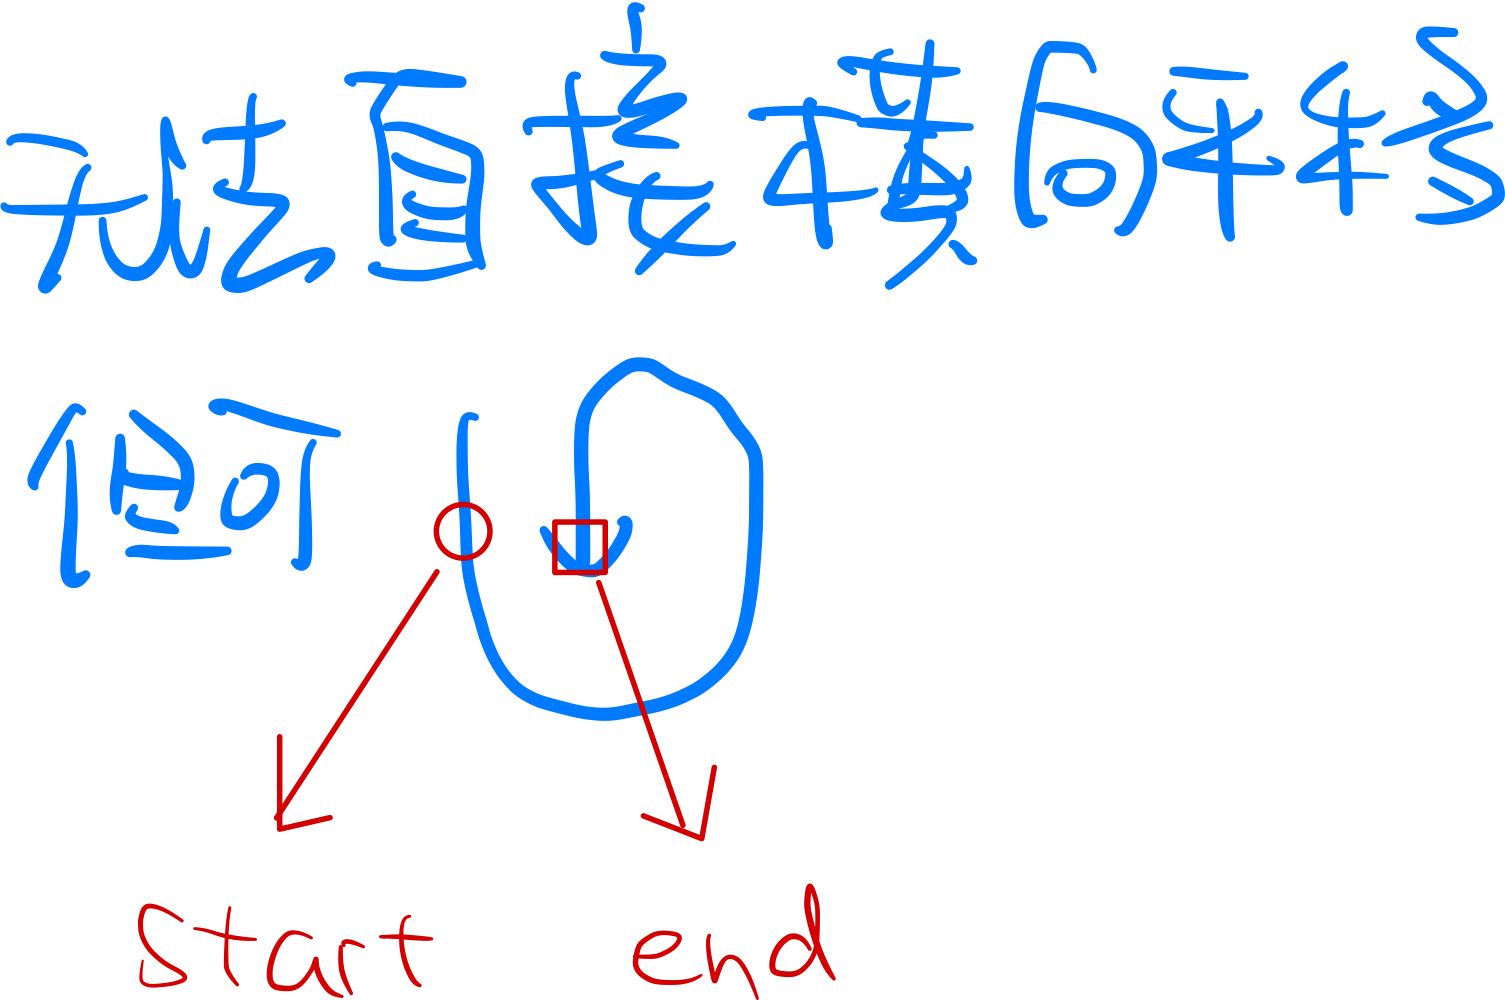 无法直接横向平移
但可
start end